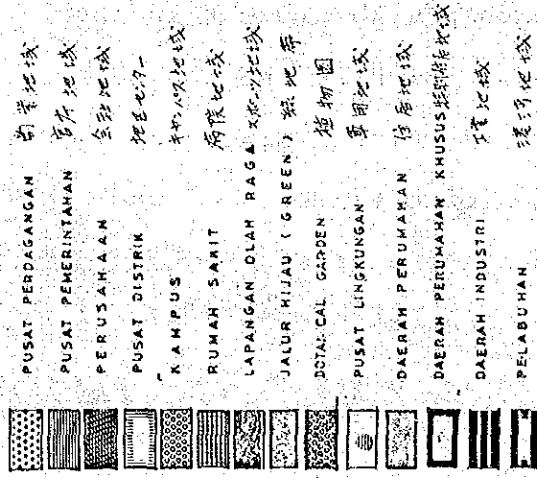 PUSAT PERDAGANGAN 商業地域
PUSAT PEMERINTAHAN 官庁地域
PERUSAHAAN 会社地域
PUSAT DISTRIK 地区センター
KAMPUS キャンパス地域
RUMAH SAKIT 病院地域
LAPANGAN OLAH RAGA スポーツ地域
JALUR HIJAU (GREEN) 緑地帯
BOTANICAL GARDEN 植物園
PUSAT LINGKUNGAN
DAERAH PERUMAHAN 住居地域
DAERAH PERUMAHAN KHUSUS 特別住居地域
DAERAH INDUSTRI 工業地域
PELABUHAN 港湾地域